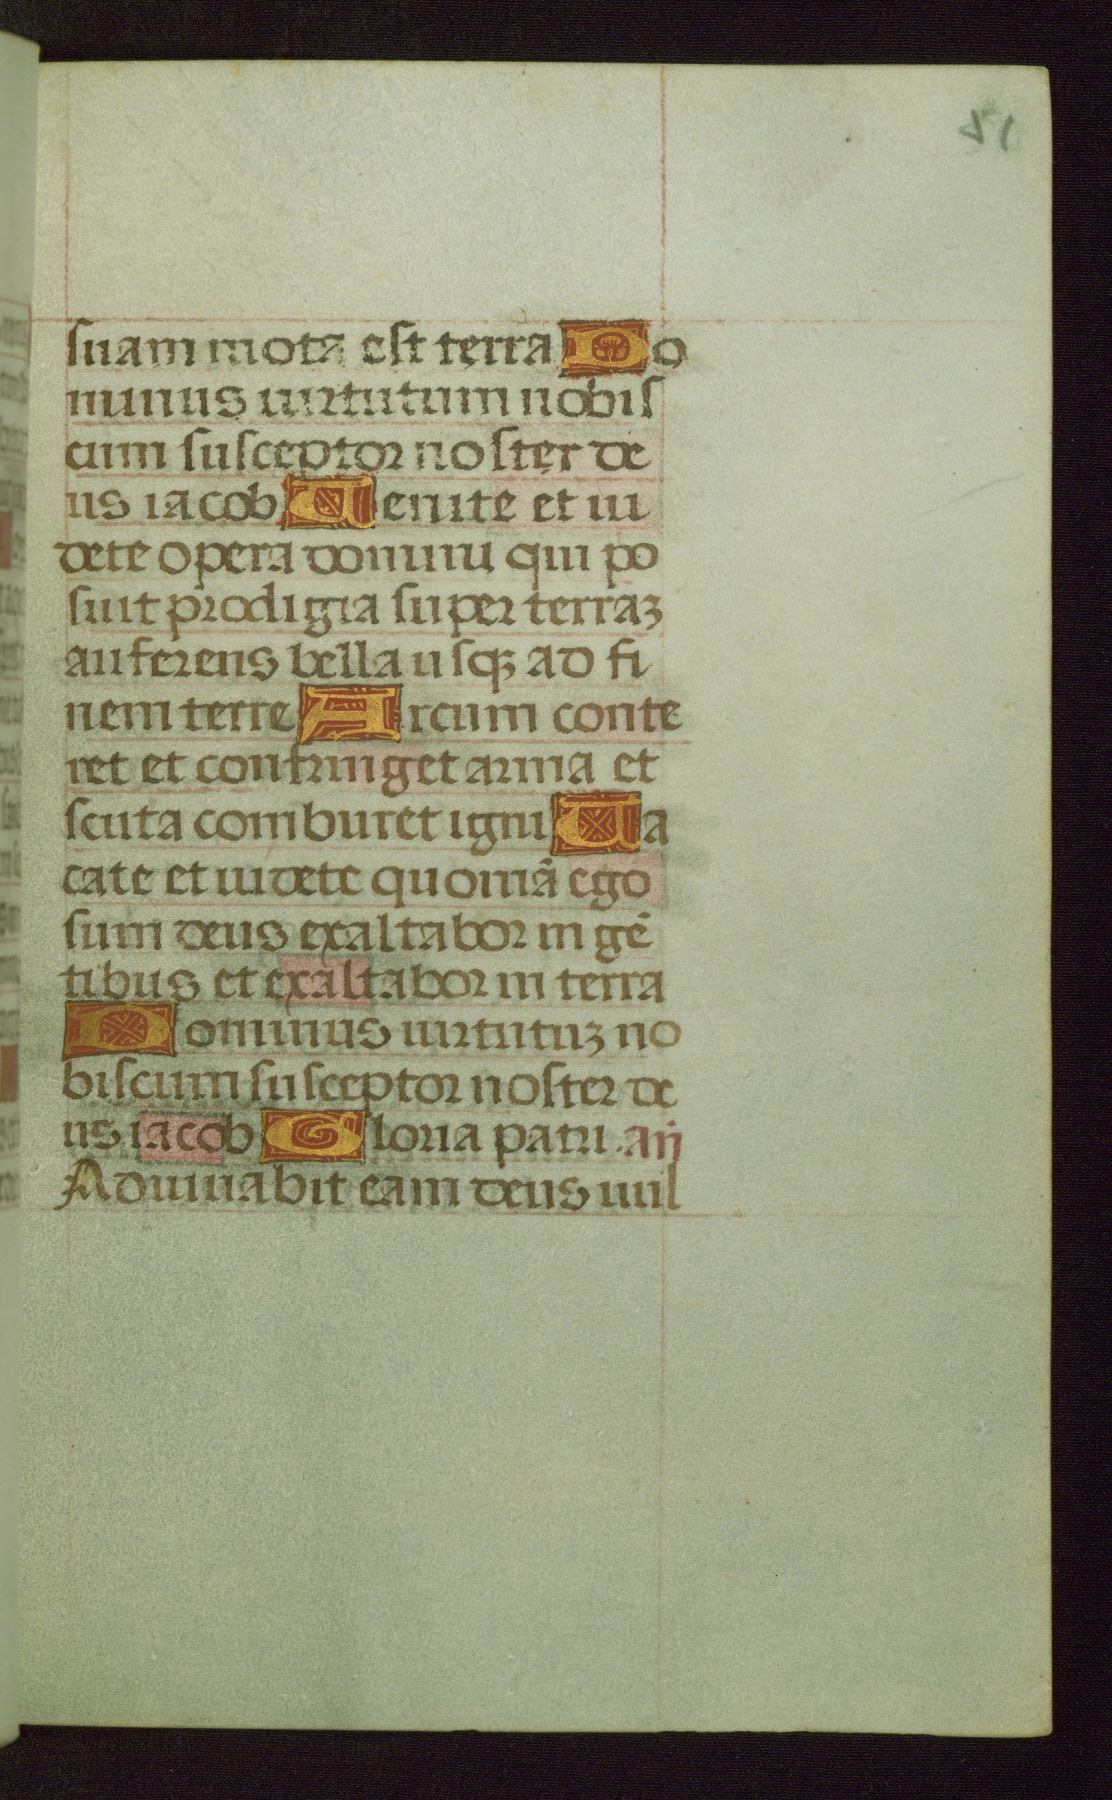 51
suam mota est terra Do
minus uirtutum nobis
cum susceptor noster de
us iacob Uenite et ui
dete opera domini qui po
suit prodigia super terraz
auferens bella usqz ad fi
nem terre Arcum conte
ret et confringet arma et
scuta comburet igni Ua
cate et uidete quoniā ego
sum deus exaltabor in gē
tibus et exaltabor in terra
Dominus uirtutuz no
biscum susceptor noster de
us iacob Gloria patri. an̄
Adiuuabit eam deus uul